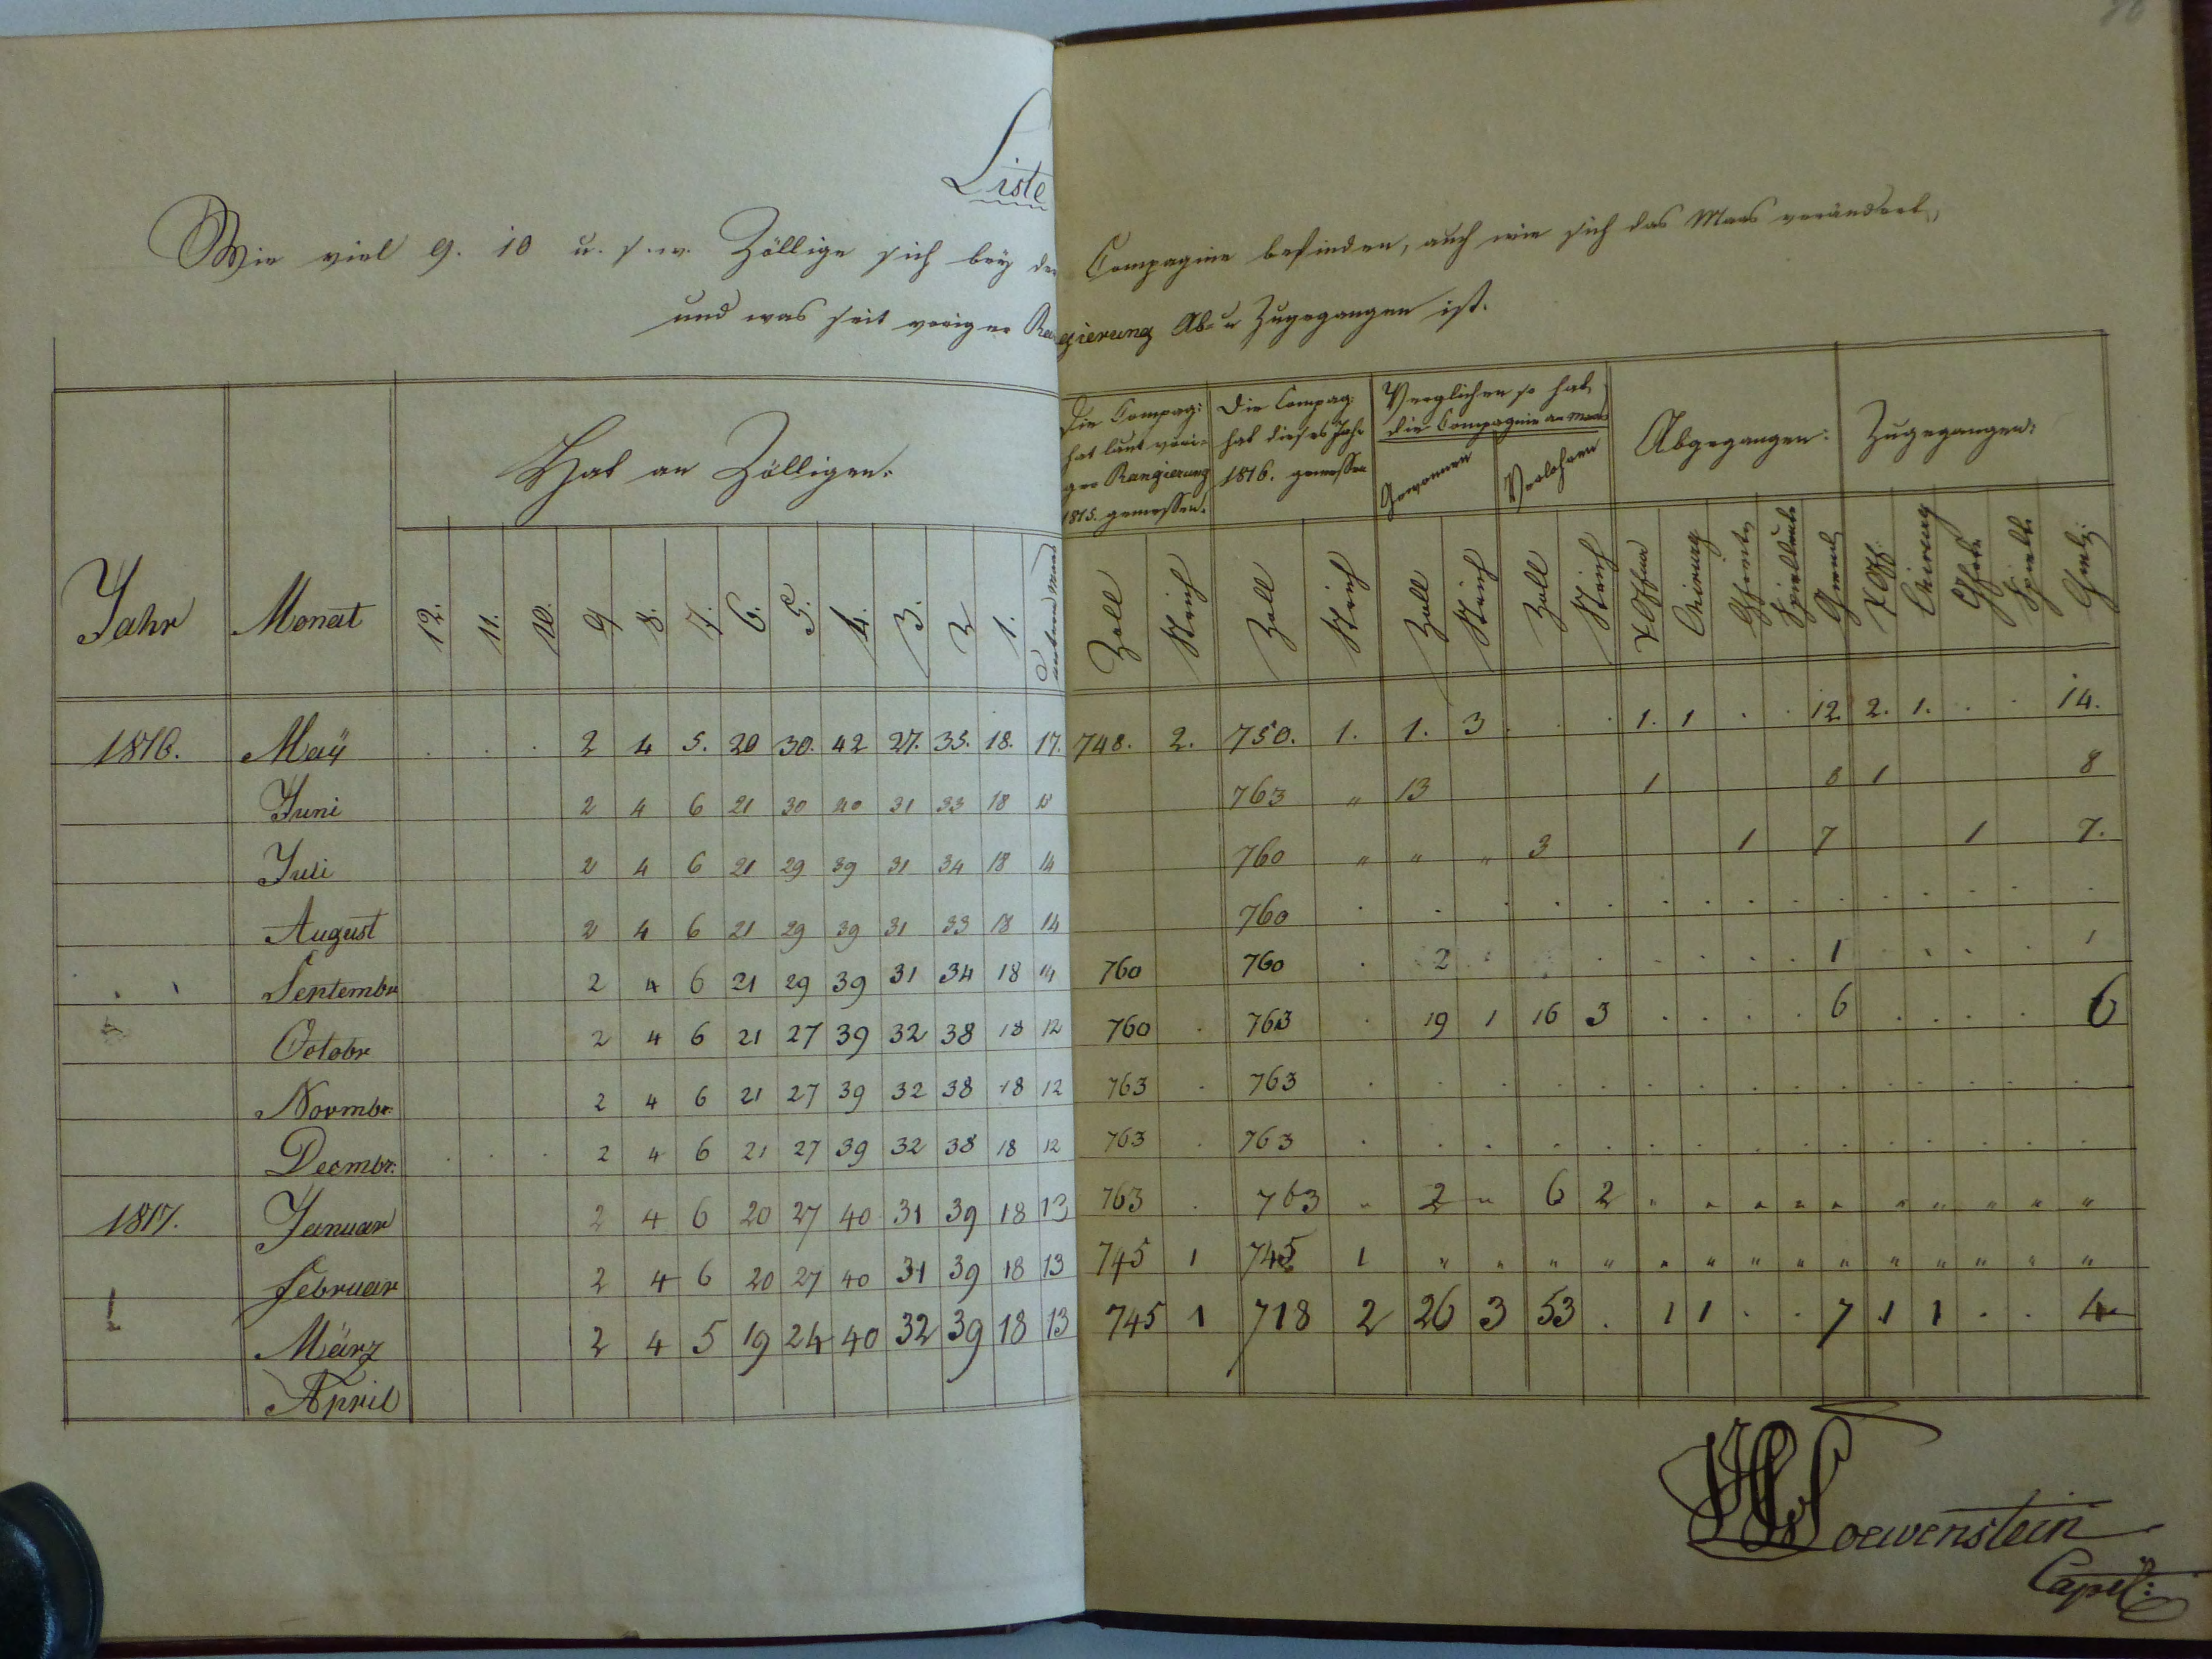 Liste
Wie viel 9. 10 u. s. w. Zöllige sich bey der Compagnie befinden, auch wie sich das Maas verändert,
und was seit voriger Rangierung Ab- u Zugegangen ist.
Jahr Monat Hat an Zölligen: Die Compag: hat laut voriger Rangierung 1815. gemessen. Die Compag. hat dieses Jahr 1816. gemessen Verglichen so hat die Compagnie an Maas Gewonnen Verlohren Abgegangen: Zugegangen:
12. 11. 10. 9 8. 7. 6. 5. 4. 3. 2 1. unterm Maas Zoll Strich Zoll Strich Zoll Strich Zoll Strich Chirurg Spielleute Gemeine Chirurg Spiell.
1816. May . . . 2 4 5. 20 30. 42 27. 35. 18. 17. 748. 2. 750. 1. 1. 3 . . . 1. 1 . . 12 2. 1. . . 14.
Juni 2 4 6 21 30 40 31 33 18 763 " 13 1 8 1 8
Juli 2 4 6 21 29 39 31 34 18 14 760 " " " 3 1 7 1 7.
August 2 4 6 21 29 39 31 33 18 14 760 . . . . . . . . . . . . . . .
Septembr 2 4 6 21 29 39 31 34 18 14 760 760 . 2 . . . . . . 1 . . . . 1
Octobr 2 4 6 21 27 39 32 38 18 12 760 . 763 . 19 1 16 3 . . . . 6 . . . . 6
Novmbr. 2 4 6 21 27 39 32 38 18 12 763 . 763 . . . . . . . . . . . . . . .
Decmbr. . . . 2 4 6 21 27 39 32 38 18 12 763 . 763 . . . . . . . . . . . . . . .
1817. Januar 2 4 6 20 27 40 31 39 18 13 763 . 763 " 2 " 6 2 " " " " " " " " " "
Februar 2 4 6 20 27 40 31 39 18 13 745 1 745 1 " " " " " " " " " " " " " "
März 2 4 5 19 24 40 32 39 18 13 745 1 718 2 26 3 53 . 1 1 . . 7 1 1 . . 4
April
Loewenstein
Capit: